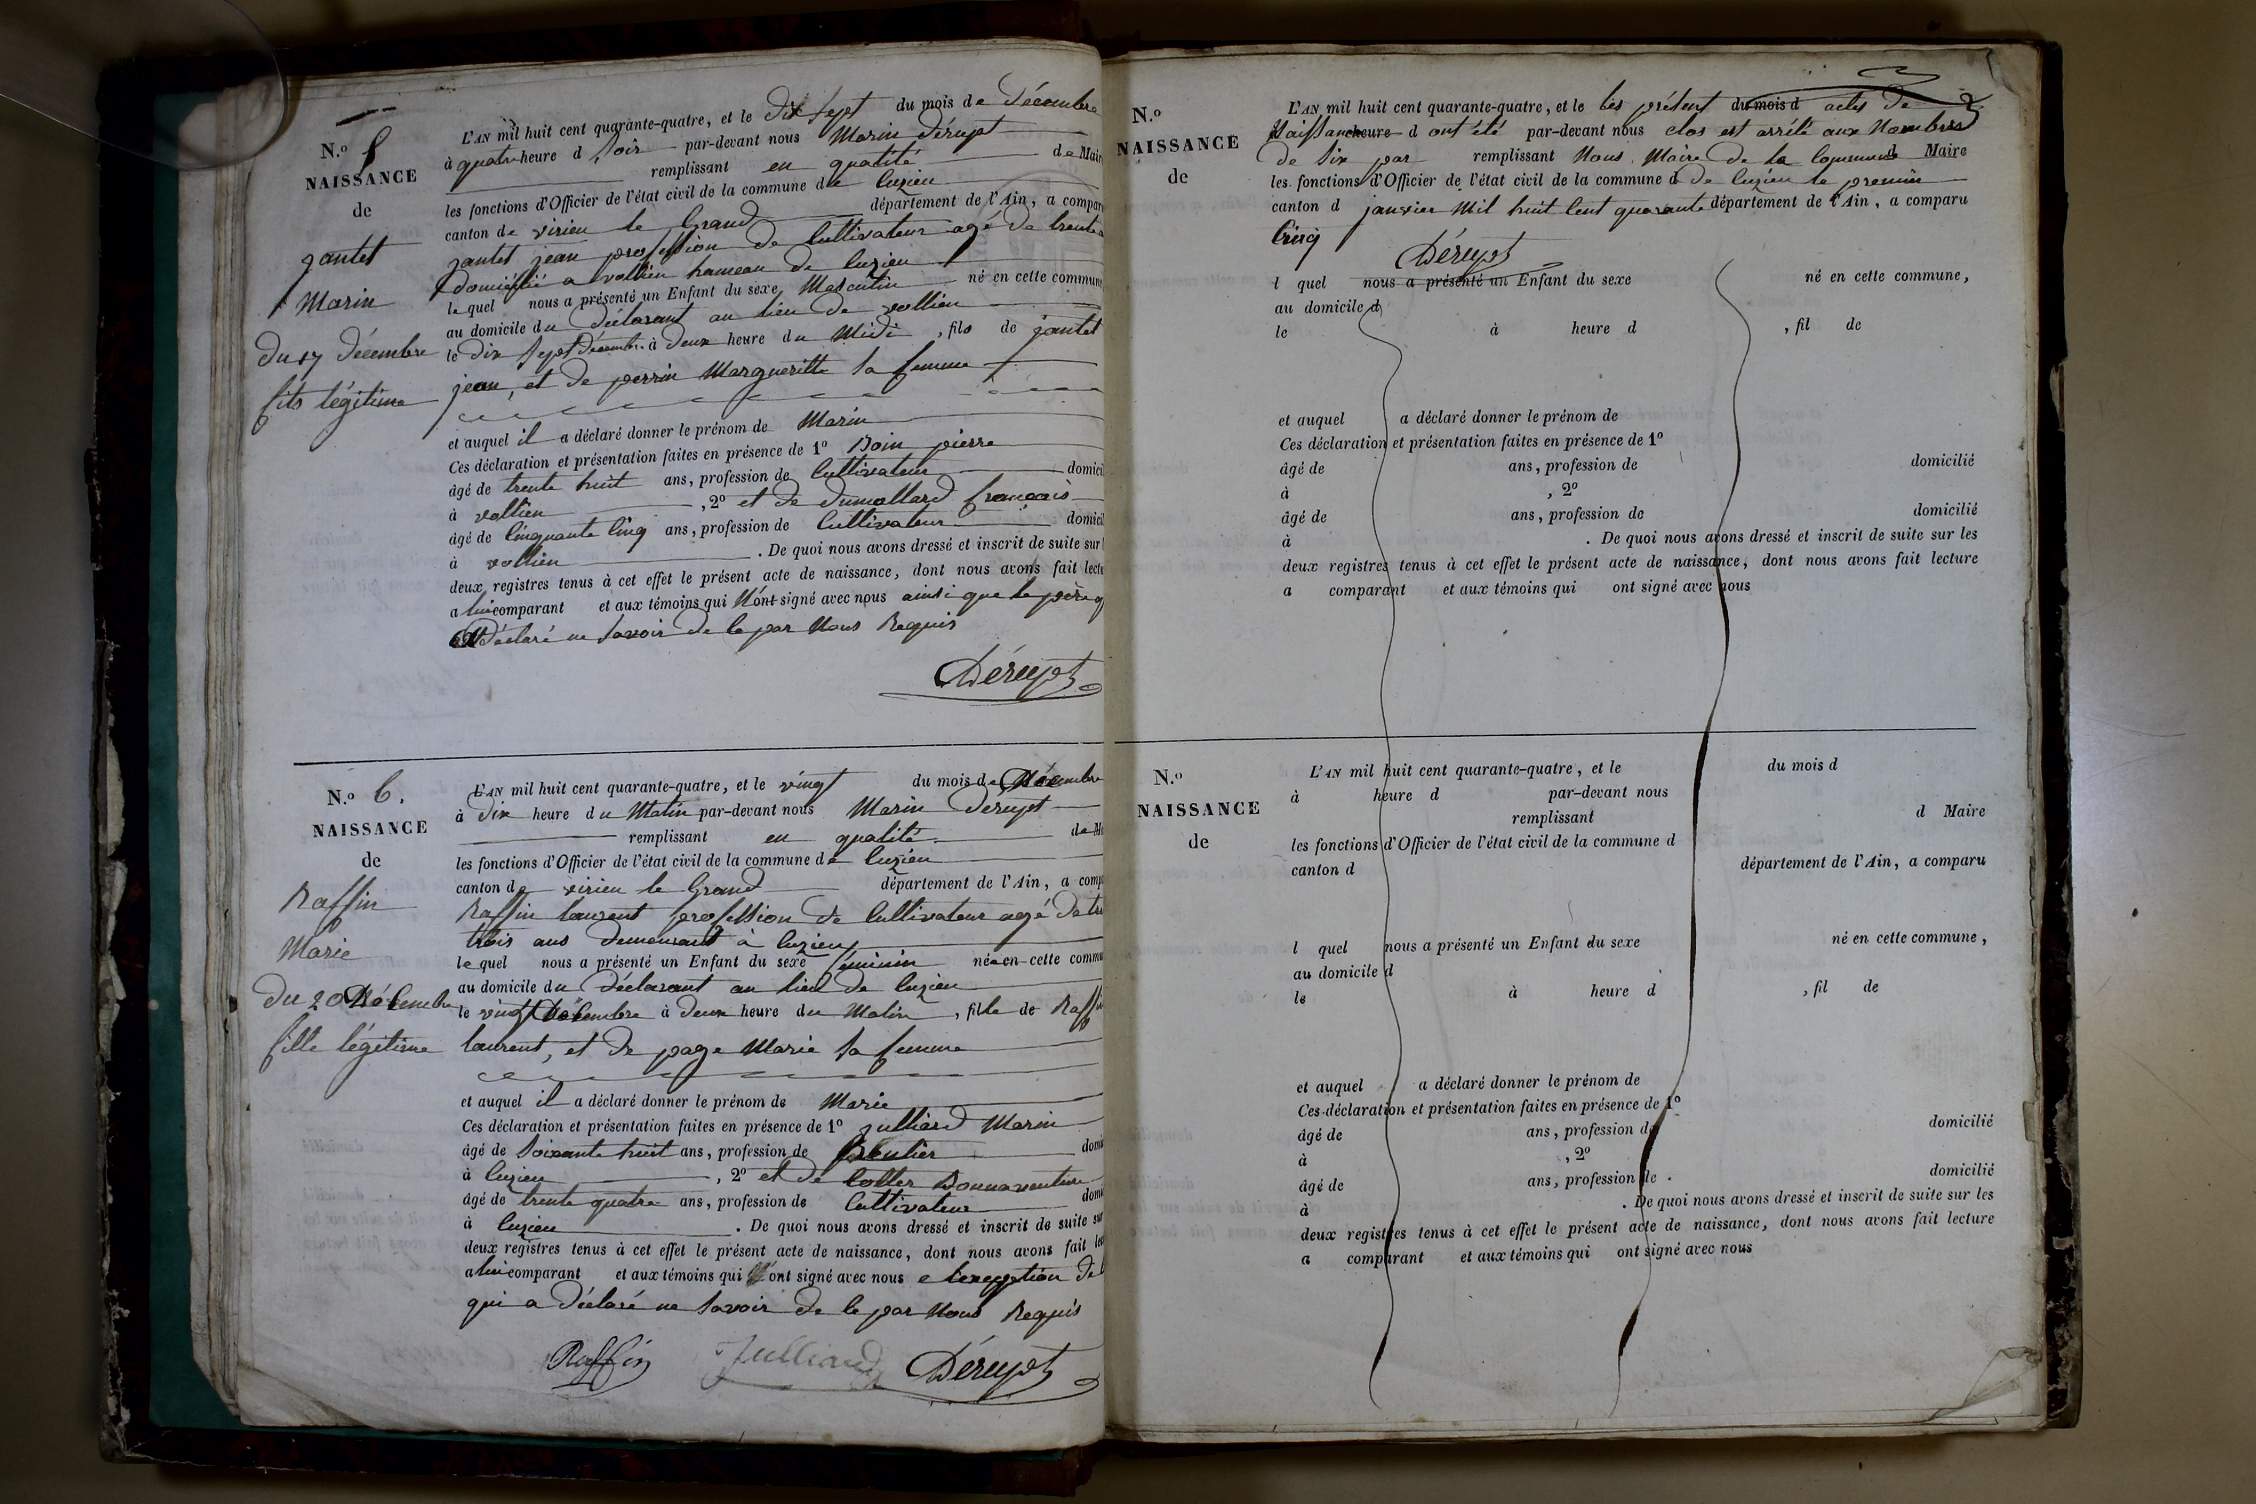 N.o 5
NAISSANCE
de
jantet
Marin
Du 17 décembre
fils légitime
L'AN mil huit cent quarante-quatre, et le dix sept du mois de Décembre
à quatre heure d soir par-devant nous Marin Dérupt
remplissant en qualité de Mair
les fonctions d'Officier de l'état civil de la commune de luzieu
canton de virieu le Grand département de l'Ain, a compar
jantet jean profession de Cultivateur agé de trente
domicilié a vollien hameau de luzieu
lequel nous a présenté un Enfant du sexe Masculin né en cette commune
au domicile du Déclarant au lieu de vollien
le dix sept Décembre à deux heure du Midi, fils de jantet
jean, et de perrin Margueritte sa femme
et auquel il a déclaré donner le prénom de Marin
Ces déclaration et présentation faites en présence de 1o Boin pierre
âgé de trente huit ans, profession de Cultivateur domicil
à vollien, 2o et de Dumollard françois
âgé de Cinquante Cinq ans, profession de Cultivateur domicil
à vollien. De quoi nous avons dressé et inscrit de suite sur
deux registres tenus à cet effet le présent acte de naissance, dont nous avons fait lectu
a lui comparant et aux témoins qui N'ont signé avec nous ainsi que le père q
Déclaré ne savoir de le par Nous Requis
Dérupt
N.o 6.
NAISSANCE
de
Raffin
Marie
Du 20 Décembre
fille légitime
L'AN mil huit cent quarante-quatre, et le vingt du mois de Décembre
à dix heure du Matin par-devant nous Marin Derupt
remplissant en qualité de Ma
les fonctions d'Officier de l'état civil de la commune de luzieu
canton de virieu le Grand département de l'Ain, a comp
Raffin laurent profession de Cultivateur agé de tre
trois ans demeurant à luzieu
lequel nous a présenté un Enfant du sexe féminin née en cette commu
au domicile du Déclarant au lieu de luzieu
le vingt Décembre à deux heure du Matin, fille de Raffi
laurent, et de page Marie sa femme
et auquel il a déclaré donner le prénom de Marie
Ces déclaration et présentation faites en présence de 1o julliard Marin
âgé de soixante huit ans, profession de Rentier domi
à luzieu, 2o et de Collet Bonnaventure
âgé de trente quatre ans, profession de Cultivateur domi
à luzieu. De quoi nous avons dressé et inscrit de suite sur
deux registres tenus à cet effet le présent acte de naissance, dont nous avons fait lec
a lui comparant et aux témoins qui ont signé avec nous a lexeption de
qui a déclaré ne savoir de le par Nous Requis
Raffin Julliard Dérupt
N.o
NAISSANCE
de
L'AN mil huit cent quarante-quatre, et le les présent du mois d actes de
Naissance heure d ont été par-devant nous clos est arrêté aux Nombres
de six par remplissant Nous Maire de la Commune d Maire
les fonctions d'Officier de l'état civil de la commune d de luzieu le premier
canton d janvier Mil huit Cent quarante département de l'Ain, a comparu
Cinq
Dérupt
l quel nous a présenté un Enfant du sexe né en cette commune,
au domicile d
le à heure d , fil de
et auquel a déclaré donner le prénom de
Ces déclaration et présentation faites en présence de 1o
âgé de ans, profession de domicilié
à , 2o
âgé de ans, profession de domicilié
à . De quoi nous avons dressé et inscrit de suite sur les
deux registres tenus à cet effet le présent acte de naissance, dont nous avons fait lecture
a comparant et aux témoins qui ont signé avec nous
N.o
NAISSANCE
de
L'AN mil huit cent quarante-quatre, et le du mois d
à heure d par-devant nous
remplissant d Maire
les fonctions d'Officier de l'état civil de la commune d
canton d département de l'Ain, a comparu
l quel nous a présenté un Enfant du sexe né en cette commune,
au domicile d
le à heure d , fil de
et auquel a déclaré donner le prénom de
Ces déclaration et présentation faites en présence de 1o
âgé de ans, profession de domicilié
à , 2o
âgé de ans, profession de domicilié
à . De quoi nous avons dressé et inscrit de suite sur les
deux registres tenus à cet effet le présent acte de naissance, dont nous avons fait lecture
a comparant et aux témoins qui ont signé avec nous